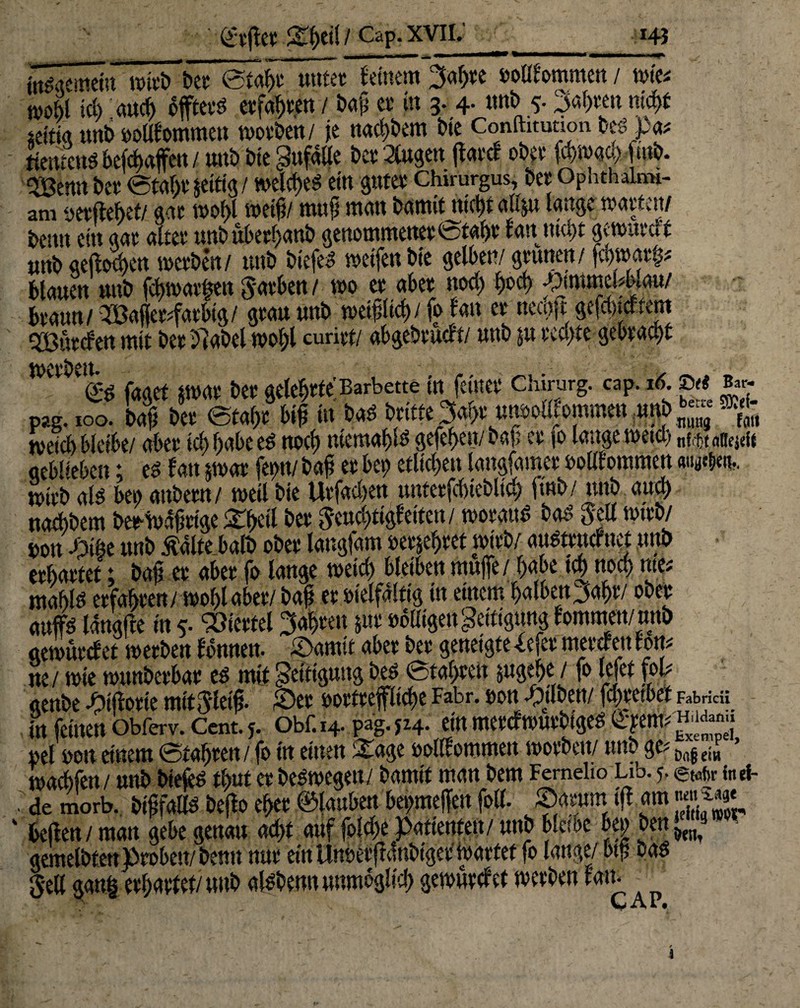 Erster Theil / Cap. XVII. 143
insgemein wird der Stahr unter keinem Jahre vollkommen / wie-
wohl ich auch öffters erfahren / daß er in 3. 4. und 5. Jahren nicht
zeitig und vollkommen worden / je nachdem die Constitution des Pa-
tientens beschaffen / und die Zufälle der Augen starck oder schwach sind.
Wenn der Stahr zeitig / welches ein guter Chirurgus, der Ophthalmi-
am verstehet / gar wohl weiß / muß man damit nicht allzu lange warten /
denn ein gar alter und überhand genommener Stahr kan nicht gewürckt
und gestochen werden / und dieses weisen die gelben / grünen / schwartz-
blauen und schwartzen Farben / wo er aber noch hoch Himmel-blau /
braun / Wasser-farbig / grau und weißlich / so kan er nechst geschicktem
Würcken mit der Nadel wohl curirt / abgedruckt / und zu rechte gebracht
werden.
Es saget zwar der gelehrte Barbette in seiner Chirurg. cap. 16. Des Bar-
pag. 100. daß der Stahr biß in das dritte Jahr unvollkommen und bette Mei-
nung kan
weich bleibe / aber ich habe es noch niemahls gesehen / daß er so lange weich nicht allezeit
geblieben ; es kan zwar seyn / daß er bey etlichen langsamer vollkommen angehen.
wird als bey andern / weil die Ursachen unterschiedlich sind / und auch
nachdem der wäßrige Theil der Feuchtigkeiten / woraus das Fell wird /
von Hitze und Kälte bald oder langsam verzehret wird / austrucknet und
erhartet ; daß er aber so lange weich bleiben müsse / habe ich noch nie-
mahls erfahren / wohl aber / daß er vielfältig in einem halben Jahr / oder
auffs längste in 5. Viertel Jahren zur völligen Zeitigung kommen / und
gewürcket werden können. Damit aber der geneigte Leser mercken kön-
ne / wie wunderbar es mit Zeitigung des Stahren zugehe / so leset fol-
gende Historie mit Fleiß. Der vortreffliche Fabr. von Hilden / schreibet Fabricii
in seinen Observ. Cent. 5. Obs. 14. pag. 524. ein merckwürdiges Exem- Hildanii
Exempel,
pel von einem Stahren / so in einen Tage vollkommen worden / und ge- daß ein
wachsen / und dieses thut er deswegen / damit man dem Fernelio Lib. 5. Stahr in ei-
de morb. dißfalls desto eher Glauben beymessen soll. Darum ist am nen Tage
zeitig wor-
besten / man gebe genau acht auf solche Patienten / und bleibe bey den den.
gemeldten Proben / denn nur ein Unverständiger wartet so lange / biß das
Fell gantz erhartet / und alsdenn unmöglich gewürcket werden kan.
CAP.